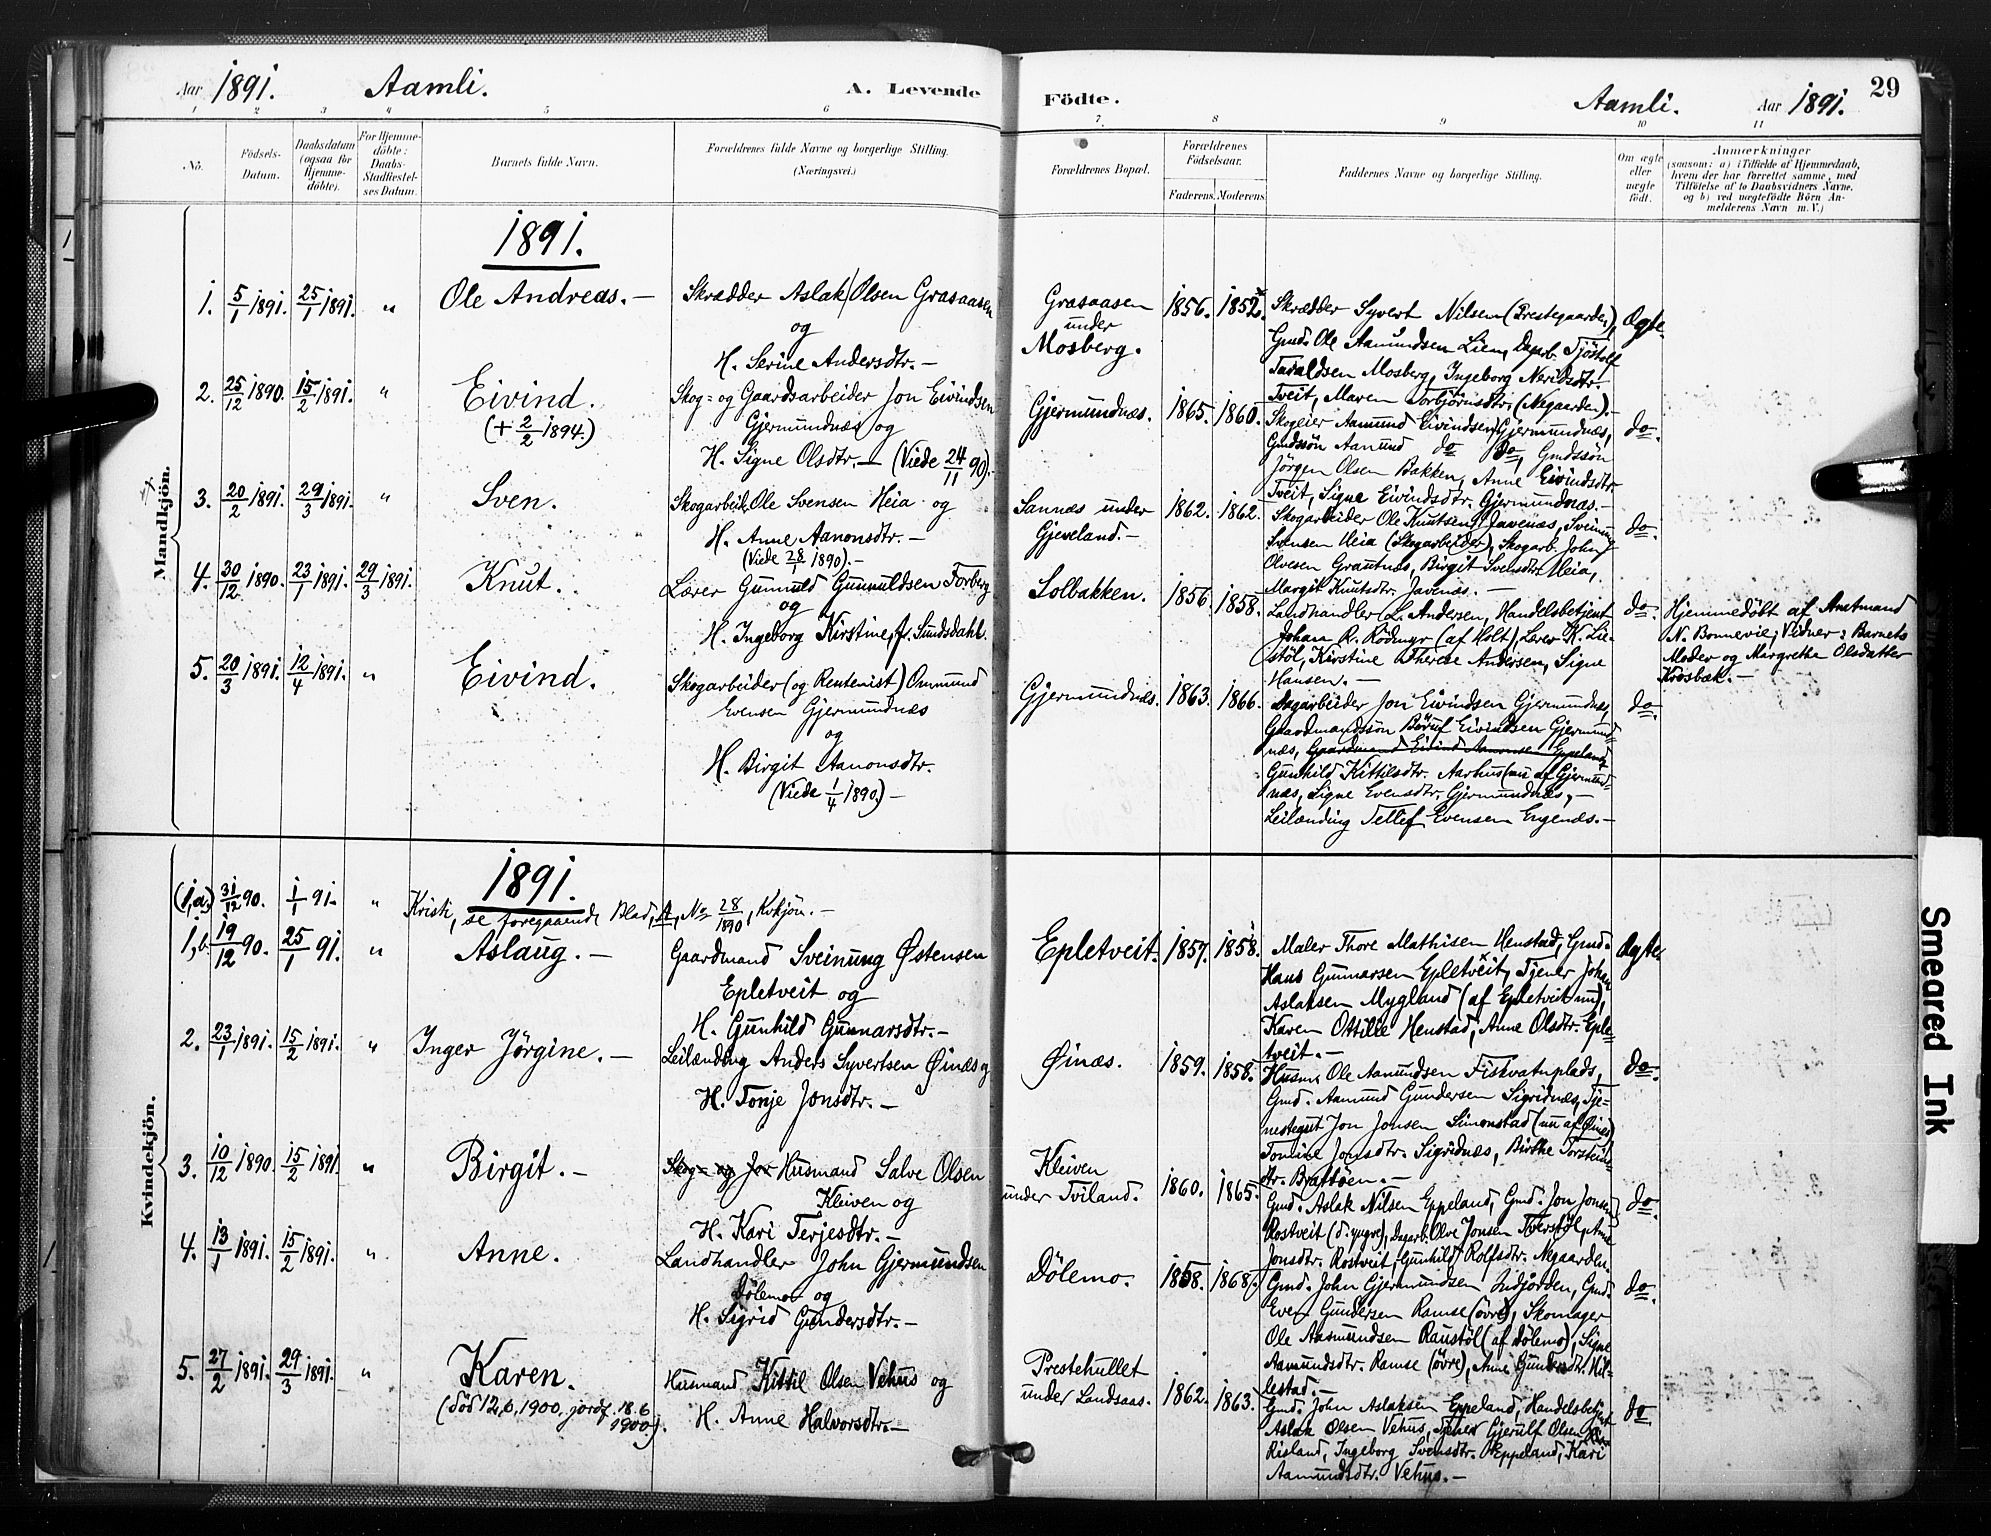 Aar 1891. Aamli. A. Levende
Födte. Aamli. Aar 1891. 29
1 2 3 4 5 6 7. 8 9 10 11
No. Födsels-Datum. Daabsdatum (ogsaa for Hjemme-döbte). For Hjemme-döbte: Daabs-Stadfæstel-ses Datum. Barnets fulde Navn. Forældrenes fulde Navne og borgerlige Stilling. (Næringsvei.)
Forældrenes Bopæl. Forældrenes Födselsaar. Faderens. Moderens. Faddernes Navne og borgerlige Stilling. Om ægte eller uægte födt.
Anmærkninger
(saasom: a) i Tilfælde af Hjemmedaab,
hvem der har forrettet samme, med
Tilföielse af to Daabsvidners Navne,
og b) ved uægtefödte Börn An-
melderens Navn m. V.)
Mandkjön.
1891.
1. 5/1 1891. 25/1 1891. " Ole Andreas. —
Skrædder Aslak Olsen Grasaasen
og
H. Serine Andersdtr. —
Grasaasen
under
Mosberg.
1856. 1852.
Skrædder Syvert Nilsen (Prestegaarden),
Gmd. Ole Aamundsen Lien, Dagarb. Tjöstolf
Taraldsen Mosberg, Ingeborg Neridsdtr.
Tveit, Maren Torbjörnsdtr. (Negaarden). —
Ægte.
2. 25/12 1890. 15/2 1891. " Eivind.
(+ 2/2 1894.)
Skog= og Gaardsarbeider Jon Eivindsen
Gjermundnæs og
H. Signe Olsdtr. — (Viede 24/11 90). —
Gjermundnæs. 1865. 1860.
Skogeier Aamund Eivindsen Gjermundnæs,
Gmdssön Aanund do do, Gmdssön
Jörgen Olsen Bakken, Anne Eivindsdtr.
Tveit, Signe Eivindsdtr. Gjermundnæs. —
do.
3. 20/2 1891. 29/3 1891. " Sven.
Skogarbeid. Ole Svensen Heia og
H. Anne Aanonsdtr. —
(Viede 28/1 1890). —
Sannæs under
Gjeveland. —
1862. 1862.
Skogarbeider Ole Knutsen Javenæs, Sveinung
Svensen Heia (Skogarbeider), Skogarb. John
Olvesen Grautnæs, Birgit Svensdtr. Heia,
Margit Knutsdtr. Javenæs. —
do.
4. 30/12 1890. 23/1 1891. 29/3 1891. Knut.
Lærer Gunnuld Gunnuldsen Forberg
og
H. Ingeborg Kirstine, f. Sundsdahl.
Solbakken. 1856. 1858.
Landhandler L. Andersen, Handelsbetjent
Johan R. Rödmyr (af Holt), Lærer K. Lie-
stöl, Kirstine Therese Andersen, Signe
Hansen. —
do.
Hjemmedöbt af Amtmand
N. Bonnevie; Vidner: Barnets
Moder og Margrethe Olsdatter
Krosbæk. —
5. 20/3 1891. 12/4 1891. " Eivind.
Skogarbeider (og Rentenist) Ommund
Evensen Gjermundnæs
og
H. Birgit Aanonsdtr.
(Viede 1/4 1890.) —
Gjermundnæs. 1863. 1866.
Dagarbeider Jon Eivindsen Gjermundnæs,
Gaardmandssön Börulf Eivindsen Gjermund-
næs, Gaardmand Eivind Aanonsen Eppeland,
Gunhild Kittilsdtr. Aarhus (nu af Gjermund-
næs, Signe Evensdtr. Gjermundnæs, —
Leilænding Tellef Evensen Engenæs. —
do.
Kvindekjön.
1891.
(1,a) 31/12 90. 1/1 91. " Kristi, se foregaaende Blad, A, No 28/1890, Kvkjön. —
1,b. 19/12 90. 25/1 91. " Aslaug. —
Gaardmand Sveinung Østensen
Epletveit og
H. Gunhild Gunnarsdtr. —
Epletveit. 1857. 1858.
Maler Thore Mathisen Henstad, Gmd.
Hans Gunnarsen Epletveit, Tjener Johan
Aslaksen Mygland (af Epletveit nu),
Karen Ottilie Henstad, Anne Olsdtr. Eple-
tveit. —
Ægte.
2. 23/1 1891. 15/2 1891. " Inger Jörgine. —
Leilænding Anders Syvertsen Øinæs og
H. Tonje Jonsdtr. —
Øinæs. 1859. 1858.
Husm. Ole Aamundsen Fiskvatnplads,
Gmd. Aamund Gundersen Sigridnæs, Tje-
nestegut Jon Jonsen Simonstad (nu af Øinæs)
Tomine Jonsdtr. Sigridnæs, Birthe Torstein-
dtr. Bratböen. —
do.
3. 10/12 1890. 15/2 1891. " Birgit. —
Skog= og Jor Husmand Salve Olsen
Kleiven og
H. Kari Terjesdtr. —
Kleiven
under Tviland.
1860. 1865.
Gmd. Aslak Nilsen Eppeland, Gmd. Jon Jonsen
Rostveit (d. yngre), Dagarb. Olve Jonsen Tverstöl, Anne
Jonsdtr. Rostveit, Gunhild Rolfsdtr. Negaarden.
do.
4. 13/1 1891. 15/2 1891. " Anne.
Landhandler John Gjermundsen
Dölemo og
H. Sigrid Gundersdtr. —
Dölemo. 1858. 1868.
Gmd. John Gjermundsen Indjorden, Gmd.
Even Gundersen Ramse (övre), Skomager
Ole Aasmundsen Raustöl (af Dölemo), Signe
Aamundsdtr. Ramse (övre), Anne Gundersdtr. Hil-
lestad. —
do.
5. 27/2 1891. 29/3 1891. " Karen.
(död 12,6,1900, jordf. 18.6 1900).
Husmand Kittil Olsen Vehus og
H. Anne Halvorsdtr. —
Prestehullet
under Landsaas.
1862. 1863.
Gmd. John Aslaksen Eppeland, Handelsbetjent
Aslak Olsen Vehus, Tjener Gjerulf Olsen
Risland, Ingeborg Svensdtr. Eppeland, Kari
Aamundsdtr. Vehus. —
do.
Smeared Ink